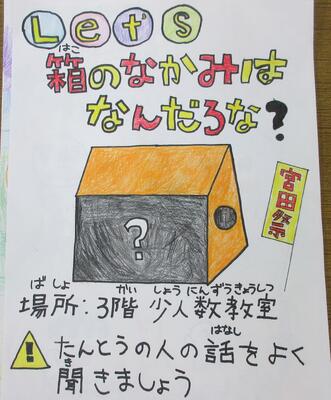 Let's
はこ
箱のなかみは
なんだろな?
?
宮田祭
ばしょ がい しょうにんずうきょうしつ
場所:3階 少人数教室
はなし
たんとうの人の話をよく
き
聞きましょう